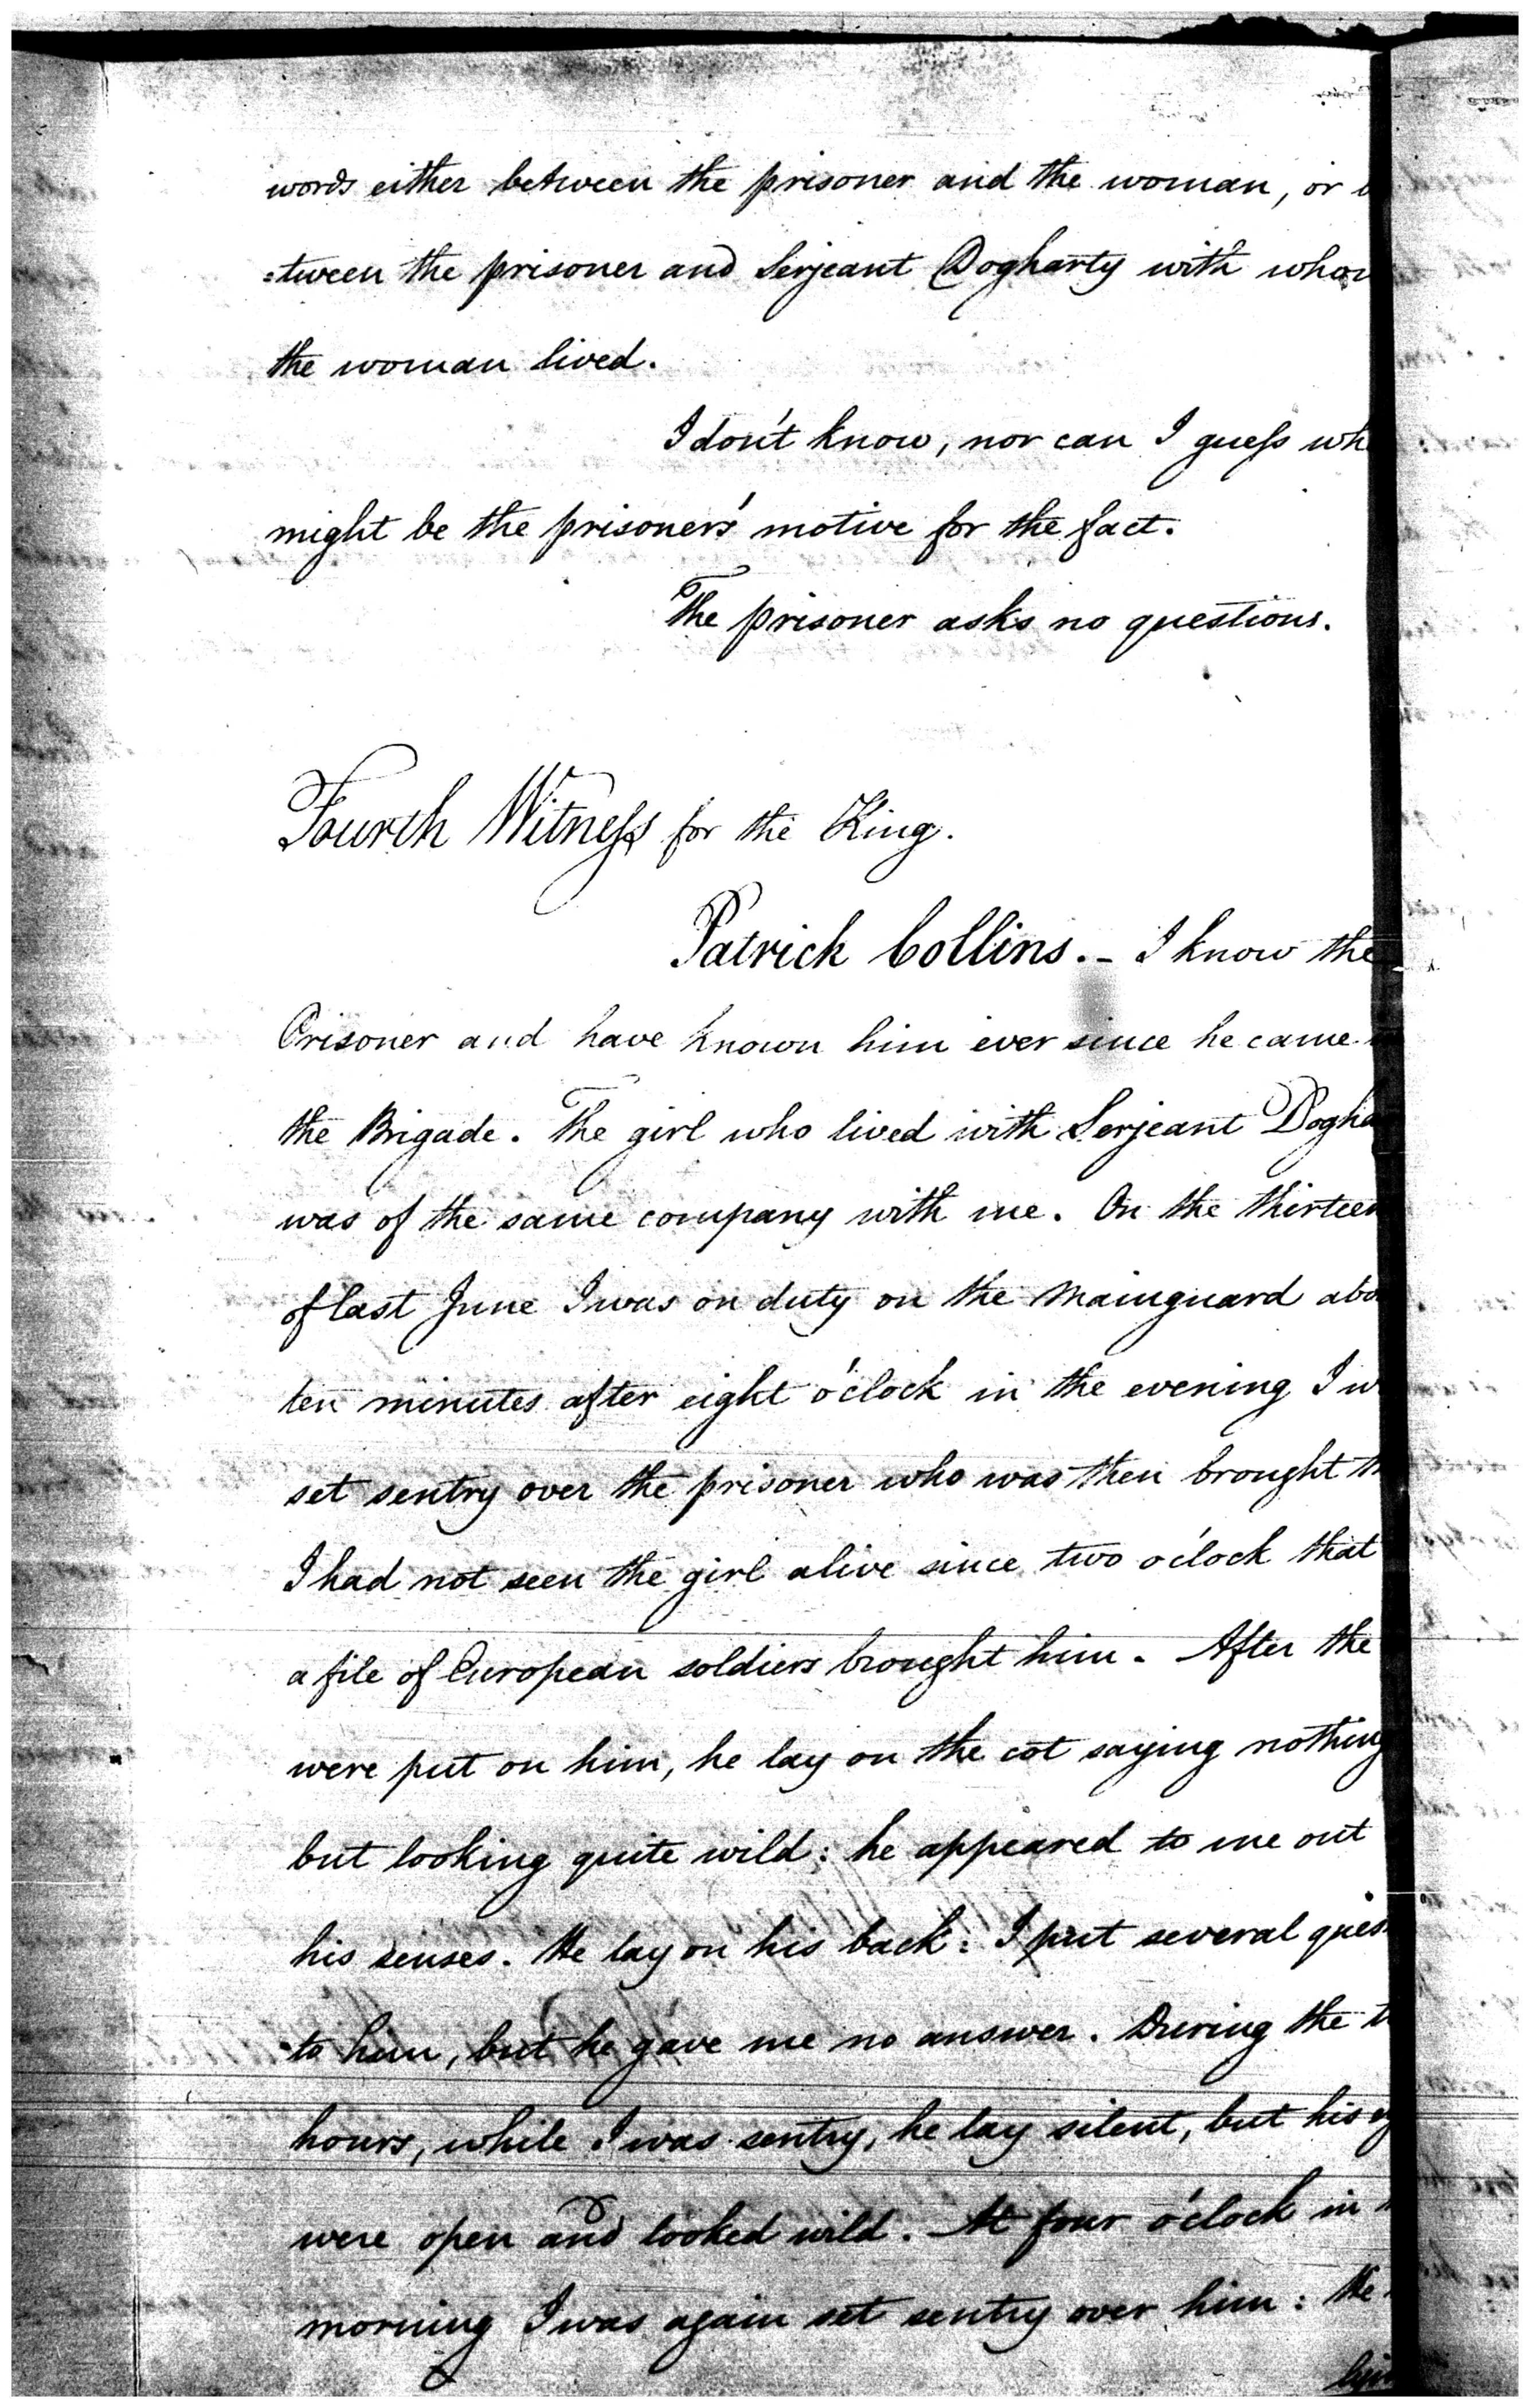 words either between the prisoner and the woman, or
=tween the prisoner and Serjeant Dogharty with
the woman lived.
I don't know, nor can I guess
might be the prisoner's motive for the fact.
The prisoner asks no questions.
Fourth Witness for the King.
Patrick Collins. - I know the
Prisoner and have known him ever since he came
the Brigade. The girl who lived with Serjeant Dogha
was of the same company with me. On the thirteen
of last June I was on duty on the Mainguard abo
ten minutes after eight o'clock in the evening I w
set sentry over the prisoner who was then brought
I had not seen the girl alive since two o'clock that
a file of European soldiers brought him. After the
were put on him, he lay on the cot saying nothing
but looking quite wild: he appeared to me out
his senses. He lay on his back: I put several ques
to him, but he gave me no answer. During the
hours, while I was sentry, he lay silent, but his
were open and looked wild. At four o'clock in
morning I was again set sentry over him: He